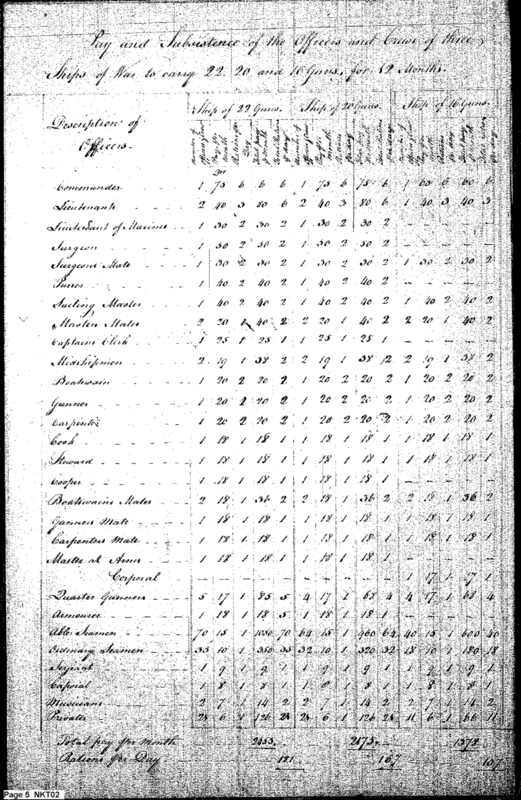 Pay and Subsistence of the Officers and Crews of three
Ships of War to carry 22. 20 and 16 Guns, for 12 Months.
Ship of 22 Guns. Ship of 20 Guns. Ship of 16 Guns.
Description of
Officers.
Commander 1 75 6 6 1 75 6 75 6 1 60 6 60 6
Lieutenants 2 40 3 80 6 2 40 3 80 6 1 40 3 40 3
Lieutenant of Marines 1 30 2 30 2 1 30 2 30 2
Surgeon 1 50 2 50 2 1 50 2 50 2
Surgeons Mate 1 30 2 30 2 1 30 2 30 2 1 30 2 30 2
Purser 1 40 2 40 2 1 40 2 40 2
Sailing Master 1 40 2 40 2 1 40 2 40 2 1 40 2 40 2
Masters Mates 2 20 1 40 2 2 20 1 40 2 2 20 1 40 2
Captains Clerk 1 25 1 25 1 1 25 1 25 1
Midshipmen 2 19 1 38 2 2 19 1 38 2 2 19 1 38 2
Boatswain 1 20 2 20 2 1 20 2 20 2 1 20 2 20 2
Gunner 1 20 2 20 2 1 20 2 20 2 1 20 2 20 2
Carpenter 1 20 2 20 2 1 20 2 20 2 1 20 2 20 2
Cook 1 18 1 18 1 1 18 1 18 1 1 18 1 18 1
Steward 1 18 1 18 1 1 18 1 18 1 1 18 1 18 1
Cooper 1 18 1 18 1 1 18 1 18 1
Boatswains Mates 2 18 1 36 2 2 18 1 36 2 2 18 1 36 2
Gunners Mate 1 18 1 18 1 1 18 1 18 1 1 18 1 18 1
Carpenters Mate 1 18 1 18 1 1 18 1 18 1 1 18 1 18 1
Master at Arms 1 18 1 18 1 1 18 1 18 1
Corporal 1 17 1 17 1
Quarter Gunners 5 17 1 85 5 4 17 1 68 4 4 17 1 68 4
Armourer 1 18 1 18 1 18 1 18 1
Able Seamen 70 15 1 1050 70 64 15 1 960 64 40 15 1 600 40
Ordinary Seamen 35 10 1 350 35 32 10 1 320 32 18 10 1 180 18
Serjeant 1 9 1 9 1 1 9 1 9 1 1 9 1 9 1
Corporal 1 8 1 8 1 1 8 1 8 1 1 8 1 8 1
Musicians 2 7 1 14 2 2 7 1 14 2 2 7 1 14 2
Privates 21 6 1 126 21 21 6 1 126 21 11 6 1 66 11
Total pay per Month 2175 1378
Rations per Day 181 167 107
Page 5 NKT02